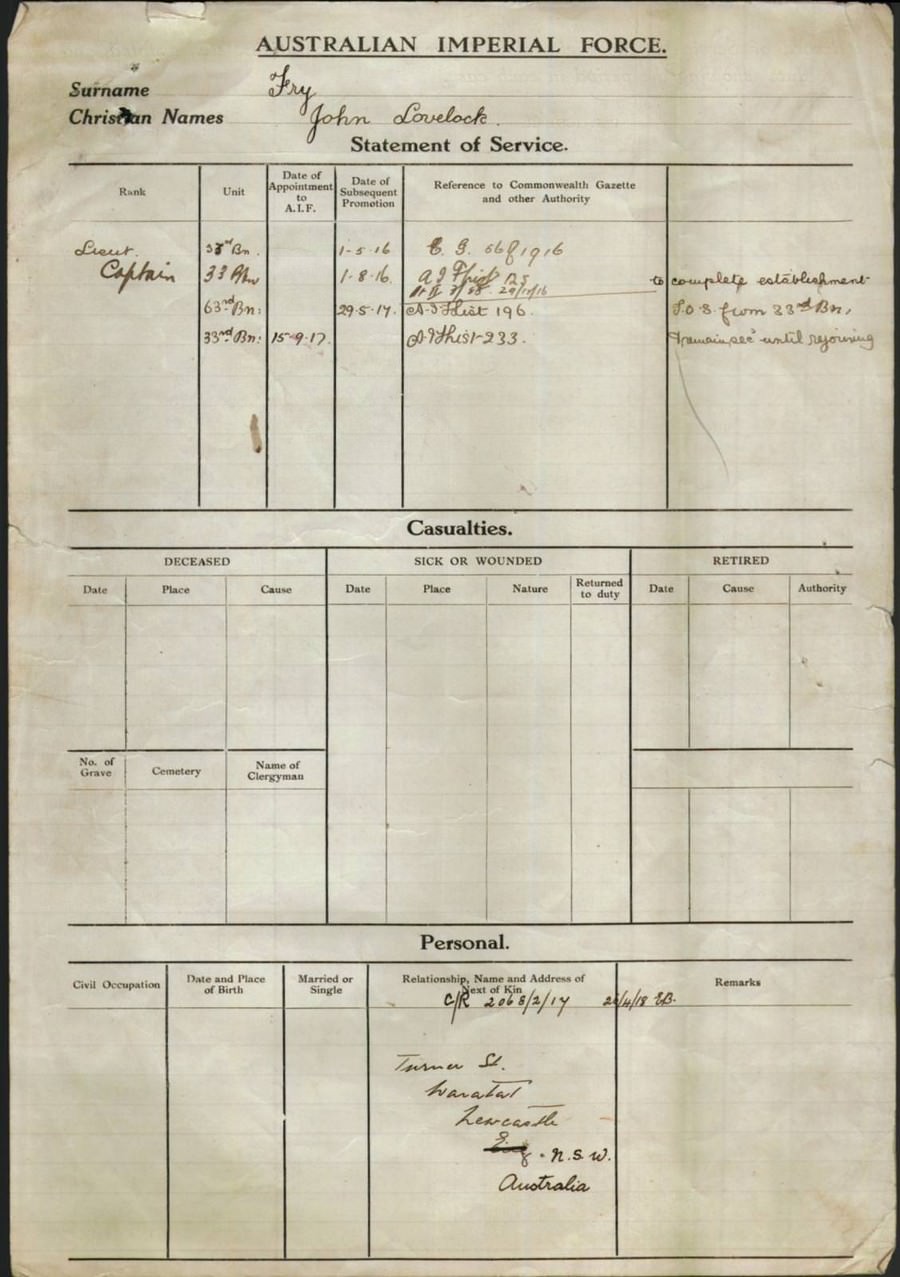 AUSTRALIAN IMPERIAL FORCE.
Surname Fry
Christian Names John Lovelock.
Statement of Service.
Rank Unit Date of Appointment to A.I.F. Date of Subsequent Promotion Reference to Commonwealth Gazette and other Authority
Lieut. 33rd Bn. 1-5-16 C. G. 56 of 1916
Captain 33 Bn 1-8-16. A I F list 125 to complete establishment
29/11/16
63rd Bn: 29.5.17. A.I.F. List 196. T.O.S. from 33rd Bn,
33rd Bn: 15-9-17. A.I.F. list 233. & remain sec until rejoining
Casualties.
DECEASED SICK OR WOUNDED RETIRED
Date Place Cause Date Place Nature Returned to duty Date Cause Authority
No. of Grave Cemetery Name of Clergyman
Personal.
Civil Occupation Date and Place of Birth Married or Single Relationship, Name and Address of Next of Kin Remarks
C/R 206 8/2/17 /4/18
Turner St.
Waratah
Newcastle
Eng. N.S.W.
Australia